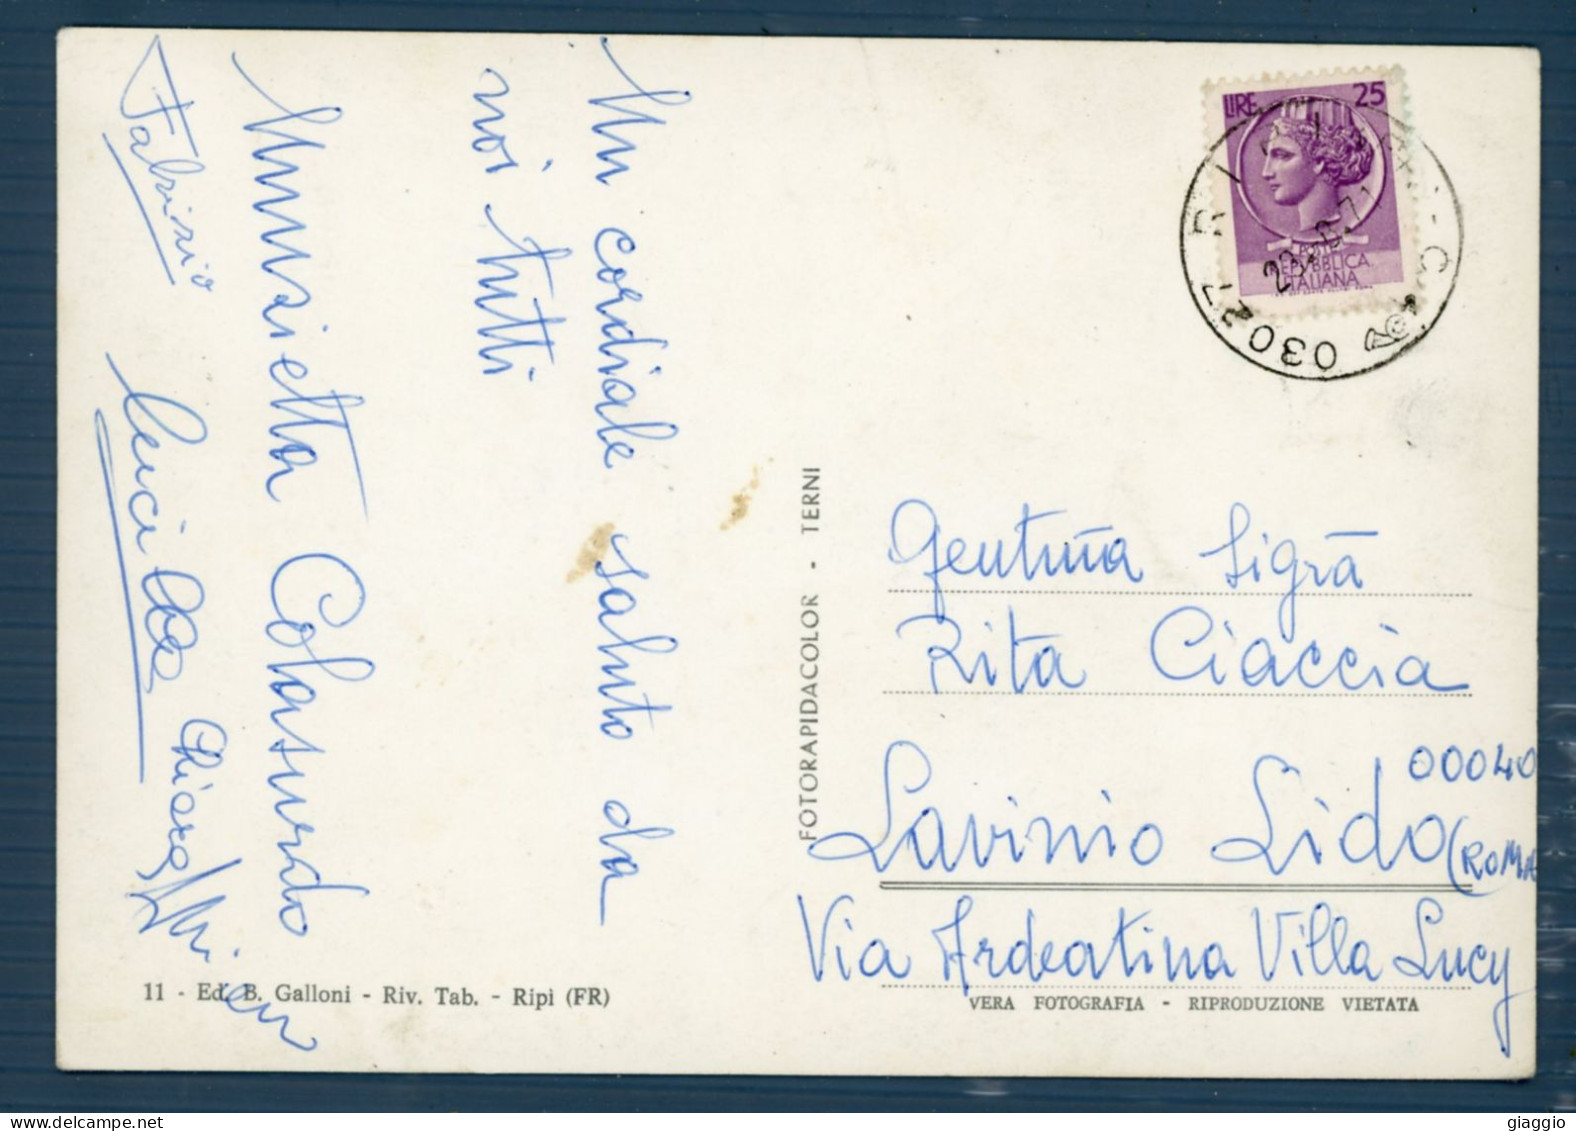 Un cordiale saluto da
noi tutti
Colasurdo
Fabrizio
Lucilla
Chiara
11 - Ed. B. Galloni - Riv. Tab. - Ripi (FR)
FOTORAPIDACOLOR - TERNI
LIRE 25
REPUBBLICA
ITALIANA
03027 RIPI
Gentma Sigra
Rita Ciaccia
00040
Lavinio Lido
(ROMA
Via Ardeatina Villa Lucy
VERA FOTOGRAFIA - RIPRODUZIONE VIETATA
giaggio